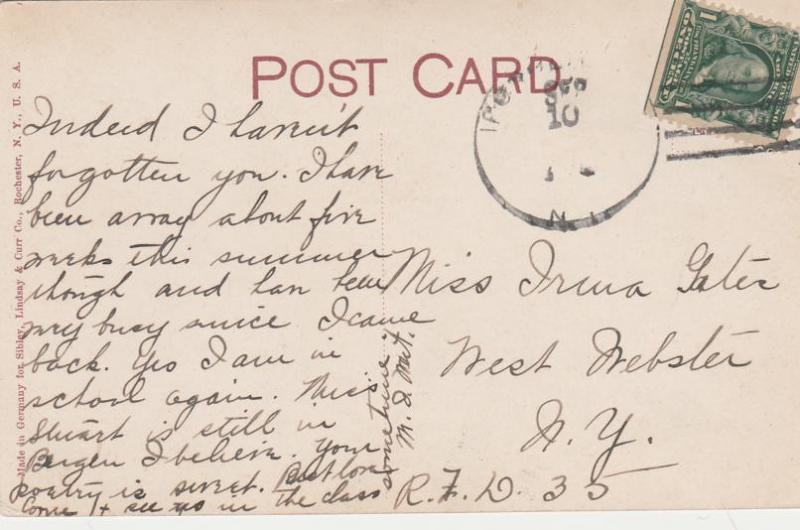 POST CARD
Made in Germany for Sibley, Lindsay & Curr Co., Rochester, N. Y., U. S. A.
Indeed I haven't
forgotten you. I have
been away about five
weeks this summer
though and have been
very busy since I came
back. Yes I am in
school again. Miss
Stuart is still in
Bergen I believe. Your
poetry is sweet. Best love
Come & see us in the class
sometime
SEP
10
N.Y.
1
1
Miss Irma Gates
West Webster
N. Y.
R. F. D. 35